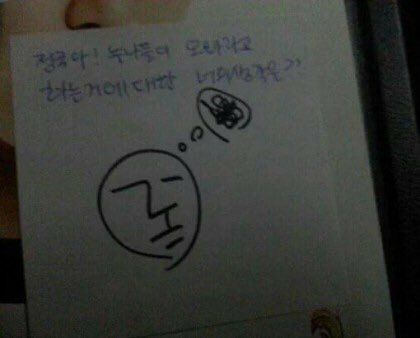 정국아! 누나들이 오빠라고
하는거에대한 너의생각은??